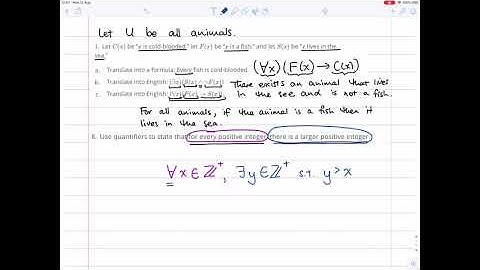 Let U be all animals.
1. Let C(x) be "x is cold-blooded," let F(x) be "x is a fish," and let S(x) be "x lives in the
sea."
a. Translate into a formula: Every fish is cold-blooded. (∀x)(F(x) → C(x))
b. Translate into English: (∃x)(S(x) ∧ ¬F(x)) There exists an animal that lives
c. Translate into English: (∀x)(F(x) → S(x)) in the sea and is not a fish.
For all animals, if the animal is a fish then it
lives in the sea.
8. Use quantifiers to state that for every positive integer, there is a larger positive integer.
∀x∈ℤ⁺, ∃y∈ℤ⁺ s.t. y>x